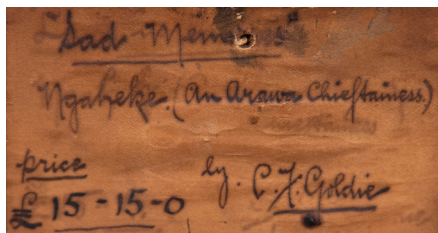 "Sad Memories"
Ngaheke. (An Arawa Chieftainess.)
price by. C. F. Goldie
£ 15-15-0